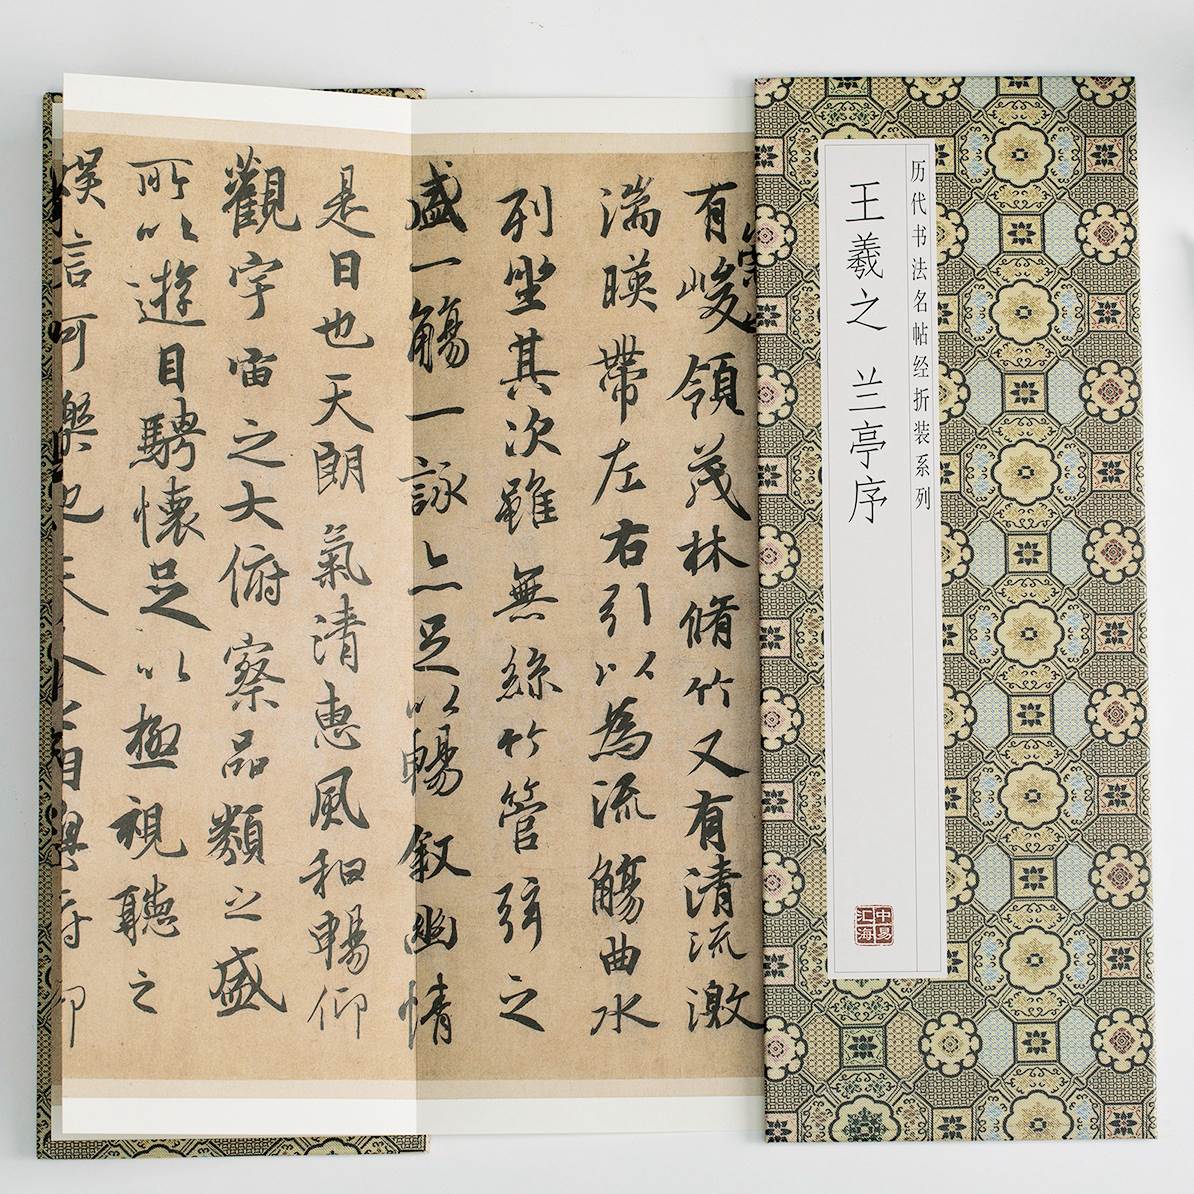 历代书法名帖经折装系列
王羲之 兰亭序
中易
汇海
有峻領茂林脩竹又有清流激
湍暎帶左右引以為流觴曲水
列坐其次雖無絲竹管弦之
盛一觴一詠亦足以暢叙幽情
是日也天朗氣清惠風和暢仰
觀宇宙之大俯察品類之盛
所以遊目騁懷足以極視聽之
娛信可樂也夫人之相與俯仰